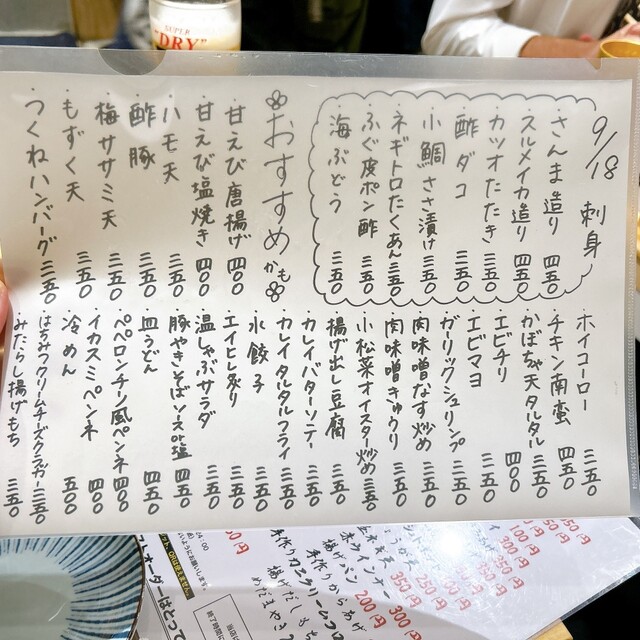 SUPER
"DRY"
9/18 刺身
・さんま造り 四五〇
・スルメイカ造り 四五〇
・カツオたたき 三五〇
・酢ダコ 三五〇
・小鯛ささ漬け 三五〇
・ネギトロたくあん 三五〇
・ふぐ皮ポン酢 三五〇
・海ぶどう 三五〇
おすすめかも
・甘えび唐揚げ 四〇〇
・甘えび塩焼き 四〇〇
・ハモ天 三五〇
・酢豚 三五〇
・梅ササミ天 三五〇
・もずく天 三五〇
・つくねハンバーグ 三五〇
・ホイコーロー 三五〇
・チキン南蛮 四五〇
・かぼちゃ天タルタル 三五〇
・エビチリ 四〇〇
・エビマヨ 三五〇
・ガーリックシュリンプ 三五〇
・肉味噌なす炒め 三五〇
・肉味噌きゅうり 三五〇
・小松菜オイスター炒め 三五〇
・揚げ出し豆腐 三五〇
・カレイバターソテー 三五〇
・カレイタルタルフライ 三五〇
・水餃子 三五〇
・エイヒレ炙り 三五〇
・温しゃぶサラダ 三五〇
・豚やきそばソースor塩 四五〇
・皿うどん 四五〇
・ペペロンチーノ風ペンネ 四〇〇
・イカスミペンネ 四〇〇
・冷めん 五〇〇
・はちみつクリームチーズクラッカー 三五〇
・みたらし揚げもち 三五〇
赤ウインナー
揚げパン 200円
手作りからあげ 300円
手作りカニクリームコロ